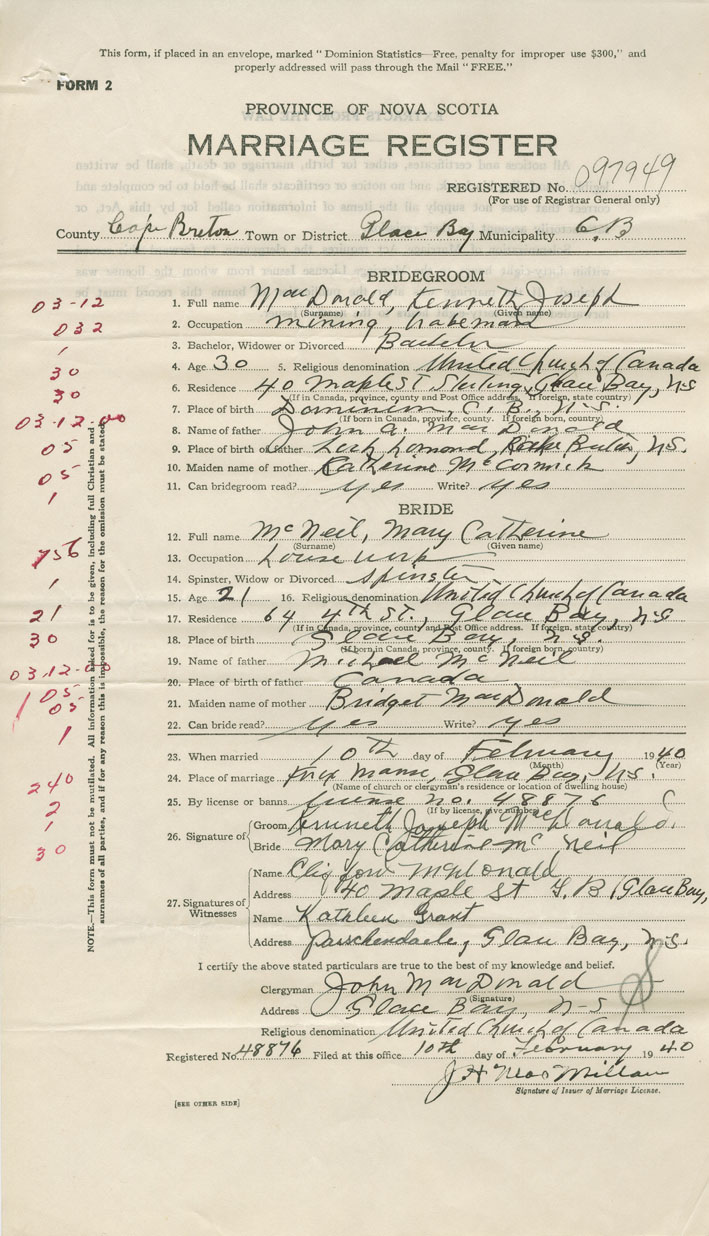 This form, if placed in an envelope, marked "Dominion Statistics—Free, penalty for improper use $300," and
properly addressed will pass through the Mail "FREE."
FORM 2
PROVINCE OF NOVA SCOTIA
MARRIAGE REGISTER
REGISTERED No. 097949
(For use of Registrar General only)
County Cape Breton Town or District Glace Bay Municipality C.B
BRIDEGROOM
03-12
1. Full name MacDonald, Kenneth Joseph
(Surname) (Given name)
032
2. Occupation mining,
1
3. Bachelor, Widower or Divorced Bachelor
30
4. Age 30 5. Religious denomination United Church of Canada
30
6. Residence 40 Maple St Sterling, Glace Bay, N-S
(If in Canada, province, county and Post Office address. If foreign, state country)
03-12-00
7. Place of birth Dominion, C.B., N.S.
(If born in Canada, province, county. If foreign born, country)
8. Name of father John A. MacDonald
05
9. Place of birth of father Loch Lomond, Breton, N.S.
05
10. Maiden name of mother Catherine McCormick
1
11. Can bridegroom read? yes Write? yes
BRIDE
12. Full name McNeil, Mary Catherine
(Surname) (Given name)
756
13. Occupation housework
1
14. Spinster, Widow or Divorced Spinster
21
15. Age 21 16. Religious denomination United Church of Canada
30
17. Residence 64 4th St., Glace Bay, N-S
(If in Canada, province, county and Post Office address. If foreign, state country)
03.12-00
18. Place of birth Glace Bay, N-S.
(If born in Canada, province, county. If foreign born, country)
19. Name of father Michael McNeil
05
20. Place of birth of father Canada
05
21. Maiden name of mother Bridget MacDonald
1
22. Can bride read? yes Write? yes
23. When married 10th day of February 1940
(Month) (Year)
240
24. Place of marriage Knox Manse, Glace Bay, N-S.
(Name of church or clergyman's residence or location of dwelling house)
2
25. By license or banns license no. 48876
(If by license, give number)
1
30
26. Signature of
Groom Kenneth Joseph MacDonald
Bride Mary Catherine Mc Neil
27. Signatures of Witnesses
Name McDonald
Address 40 Maple St G.B (Glace Bay,
Name Kathleen Grant
Address Passchendaele, Glace Bay, N-S.
I certify the above stated particulars are true to the best of my knowledge and belief.
Clergyman John MacDonald
(Signature)
Address Glace Bay, N-S
Religious denomination United Church of Canada
Registered No. 48876 Filed at this office 10th day of February 1940
J H MacMillan
Signature of Issuer of Marriage License.
[SEE OTHER SIDE]
NOTE.—This form must not be mutilated. All information asked for is to be given, including full Christian and
surnames of all parties, and if for any reason this is impossible, the reason for the omission must be stated.